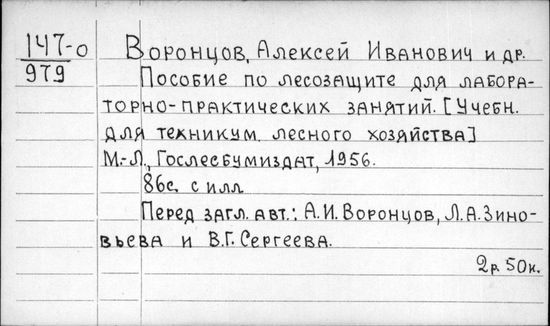 147-о
979
Воронцов, Алексей Иванович и др.
Пособие по лесозащите для лабора-
торно-практических занятий. [Учебн.
для техникум. лесного хозяйства]
М.-Л., Гослесбумиздат, 1956.
86с. с илл.
Перед загл. авт.: А.И. Воронцов, Л.А. Зино-
вьева и В.Г. Сергеева.
2р. 50к.